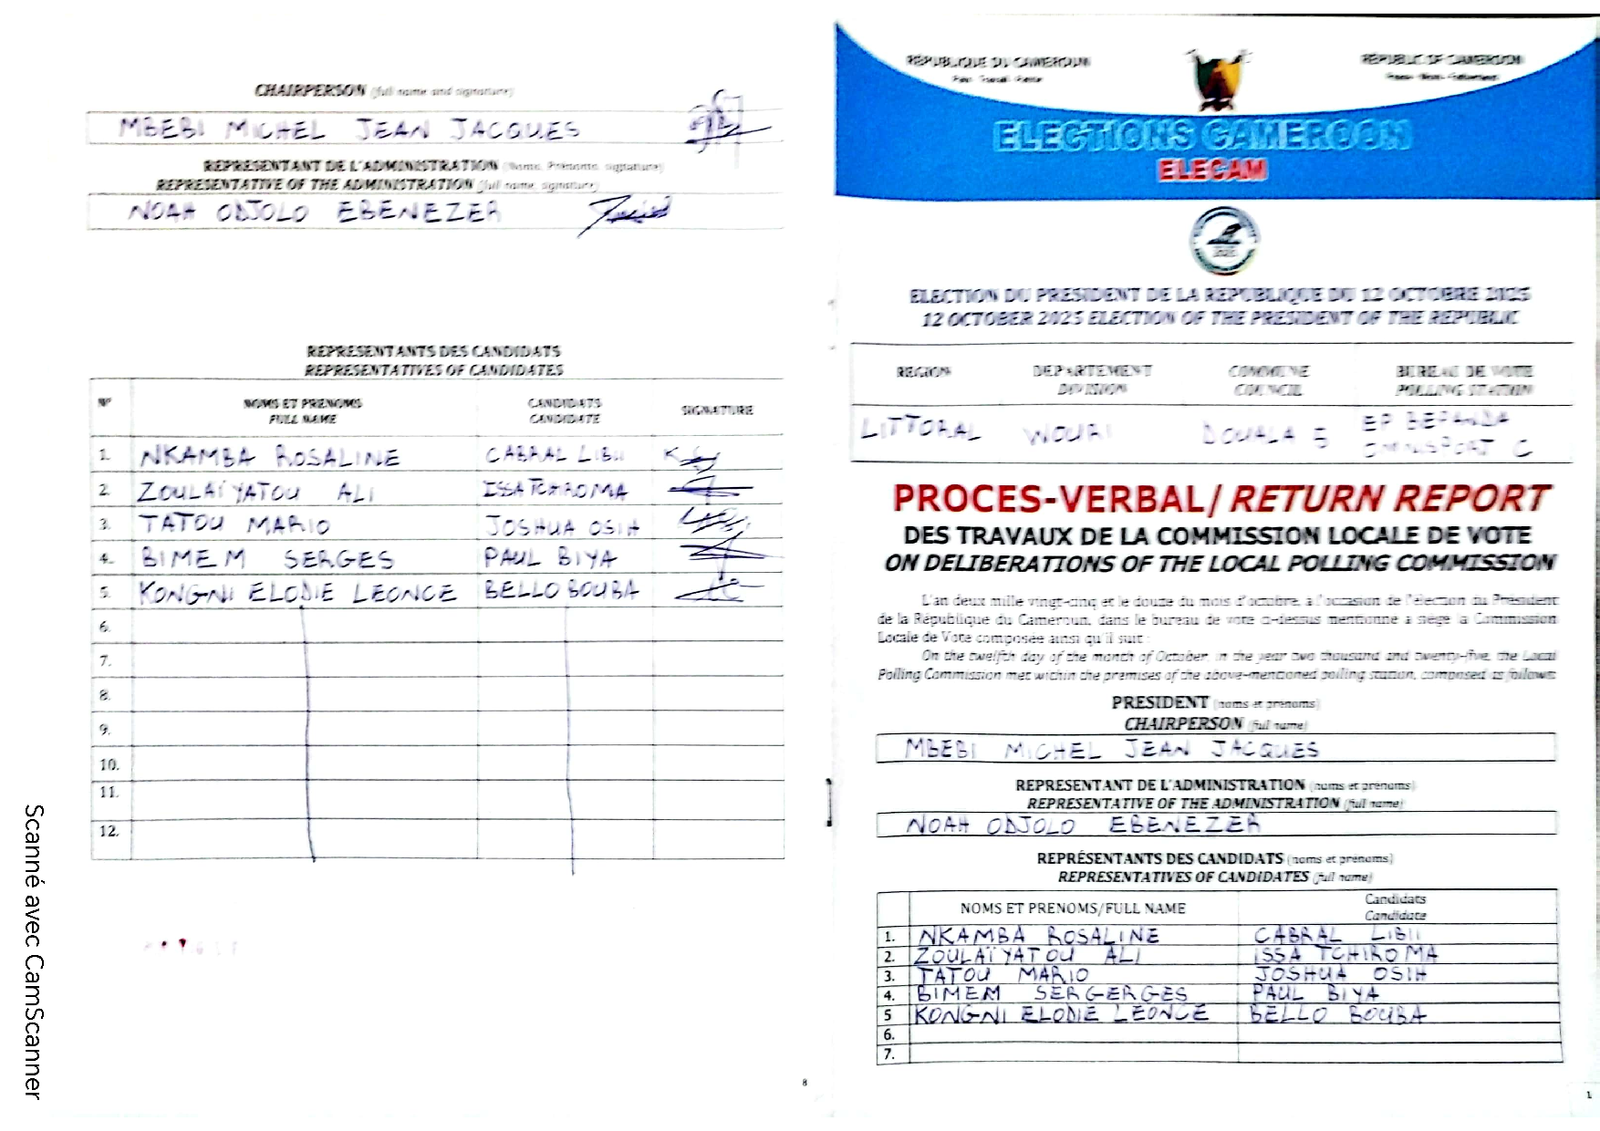 CHAIRPERSON (full name and signature)
MBEBI MICHEL JEAN JACQUES
REPRESENTANT DE L'ADMINISTRATION (Noms, Prénoms, signature)
REPRESENTATIVE OF THE ADMINISTRATION (full name, signature)
NOAH ODJOLO EBENEZER
REPRESENTANTS DES CANDIDATS
REPRESENTATIVES OF CANDIDATES
N° NOMS ET PRENOMS CANDIDATS SIGNATURE
FULL NAME CANDIDATE
1. NKAMBA ROSALINE CABRAL LIBII
2. ZOULAÏYATOU ALI ISSA TCHIROMA
3. TATOU MARIO JOSHUA OSIH
4. BIMEM SERGES PAUL BIYA
5. KONGNI ELODIE LEONCE BELLO BOUBA
6.
7.
8.
9.
10.
11.
12.
8
Scanné avec CamScanner
RÉPUBLIQUE DU CAMEROUN REPUBLIC OF CAMEROON
Paix - Travail - Patrie Peace - Work - Fatherland
ELECTIONS CAMEROON
ELECAM
ELECTION DU PRESIDENT DE LA REPUBLIQUE DU 12 OCTOBRE 2025
12 OCTOBER 2025 ELECTION OF THE PRESIDENT OF THE REPUBLIC
REGION DEPARTEMENT COMMUNE BUREAU DE VOTE
DIVISION COUNCIL POLLING STATION
LITTORAL WOURI DOUALA 5 EP BEPANDA
OMNISPORT C
PROCES-VERBAL/ RETURN REPORT
DES TRAVAUX DE LA COMMISSION LOCALE DE VOTE
ON DELIBERATIONS OF THE LOCAL POLLING COMMISSION
L'an deux mille vingt-cinq et le douze du mois d'octobre, à l'occasion de l'élection du Président
de la République du Cameroun, dans le bureau de vote ci-dessus mentionné a siégé la Commission
Locale de Vote composée ainsi qu'il suit :
On the twelfth day of the month of October, in the year two thousand and twenty-five, the Local
Polling Commission met within the premises of the above-mentioned polling station, composed as follows:
PRESIDENT (noms et prénoms)
CHAIRPERSON (full name)
MBEBI MICHEL JEAN JACQUES
REPRESENTANT DE L'ADMINISTRATION (noms et prénoms)
REPRESENTATIVE OF THE ADMINISTRATION (full name)
NOAH ODJOLO EBENEZER
REPRÉSENTANTS DES CANDIDATS (noms et prénoms)
REPRESENTATIVES OF CANDIDATES (full name)
NOMS ET PRENOMS/FULL NAME Candidats
Candidate
1. NKAMBA ROSALINE CABRAL LIBII
2. ZOULAÏYATOU ALI ISSA TCHIROMA
3. TATOU MARIO JOSHUA OSIH
4. BIMEM SERGERGES PAUL BIYA
5 KONGNI ELODIE LEONCE BELLO BOUBA
6.
7.
1